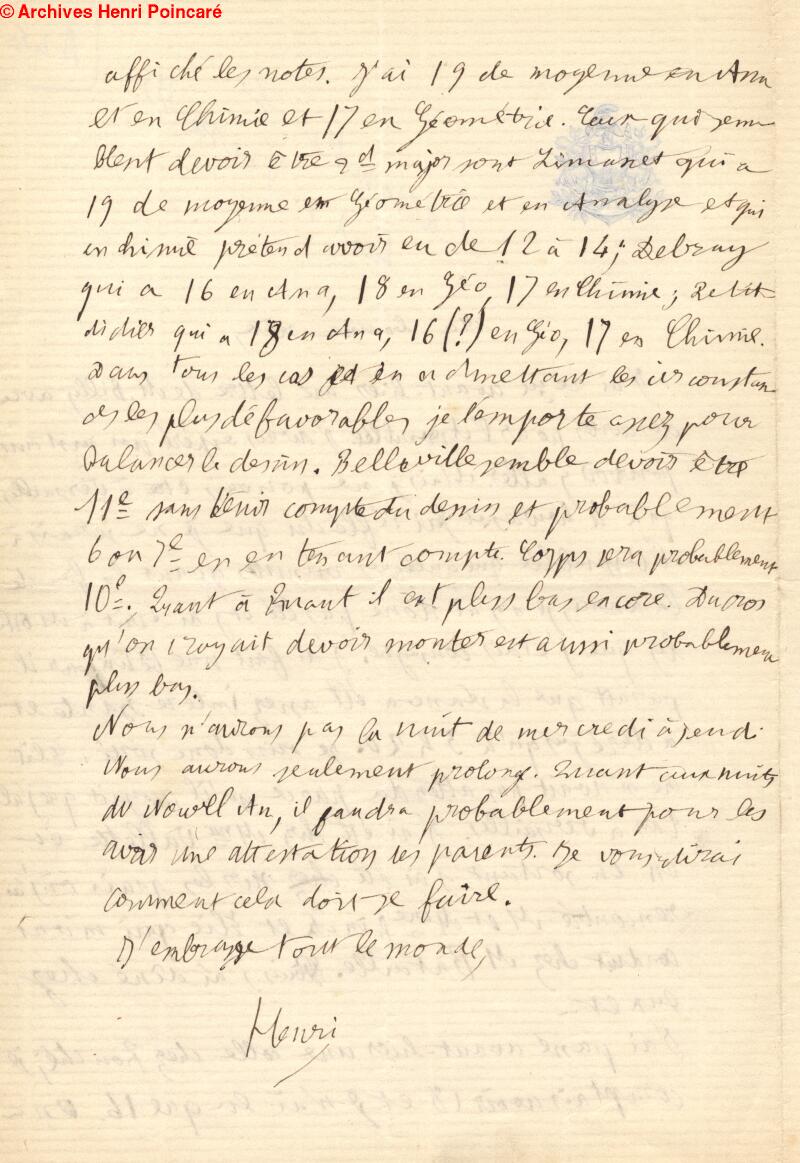 © Archives Henri Poincaré
affiché les notes. J'ai 19 de moyenne en Ana
et en Chimie et 17 en Géométrie. Ceux qui sem
blent devoir être 2d major sont Limanet qui a
19 de moyenne en Géométrie et en Analyse et qui
en chimie prétend avoir eu de 12 à 14; Debray
qui a 16 en Ana, 18 en Géo, 17 en Chimie; Petit
didier qui a 18 en Ana, 16 (?) en Géo, 17 en Chimie.
Dans tous les cas et en admettant les circonstan
ces les plus défavorables je l'emporte assez pour
balancer le dessin. Belleville semble devoir être
11e sans tenir compte du dessin et probablement
6 ou 7e en en tenant compte. Corps sera probablement
10e. Quant à il est plus bas encore. Ducros
qu'on croyait devoir monter est aussi probablement
plus bas.
Nous n'aurons pas la nuit de mercredi à jeudi
Nous aurons seulement prolonge. Quant aux nuits
du Nouvel An, il faudra probablement pour les
avoir une attestation des parents. Je vous dirai
comment cela doit se faire.
J'embrasse tout le monde,
Henri